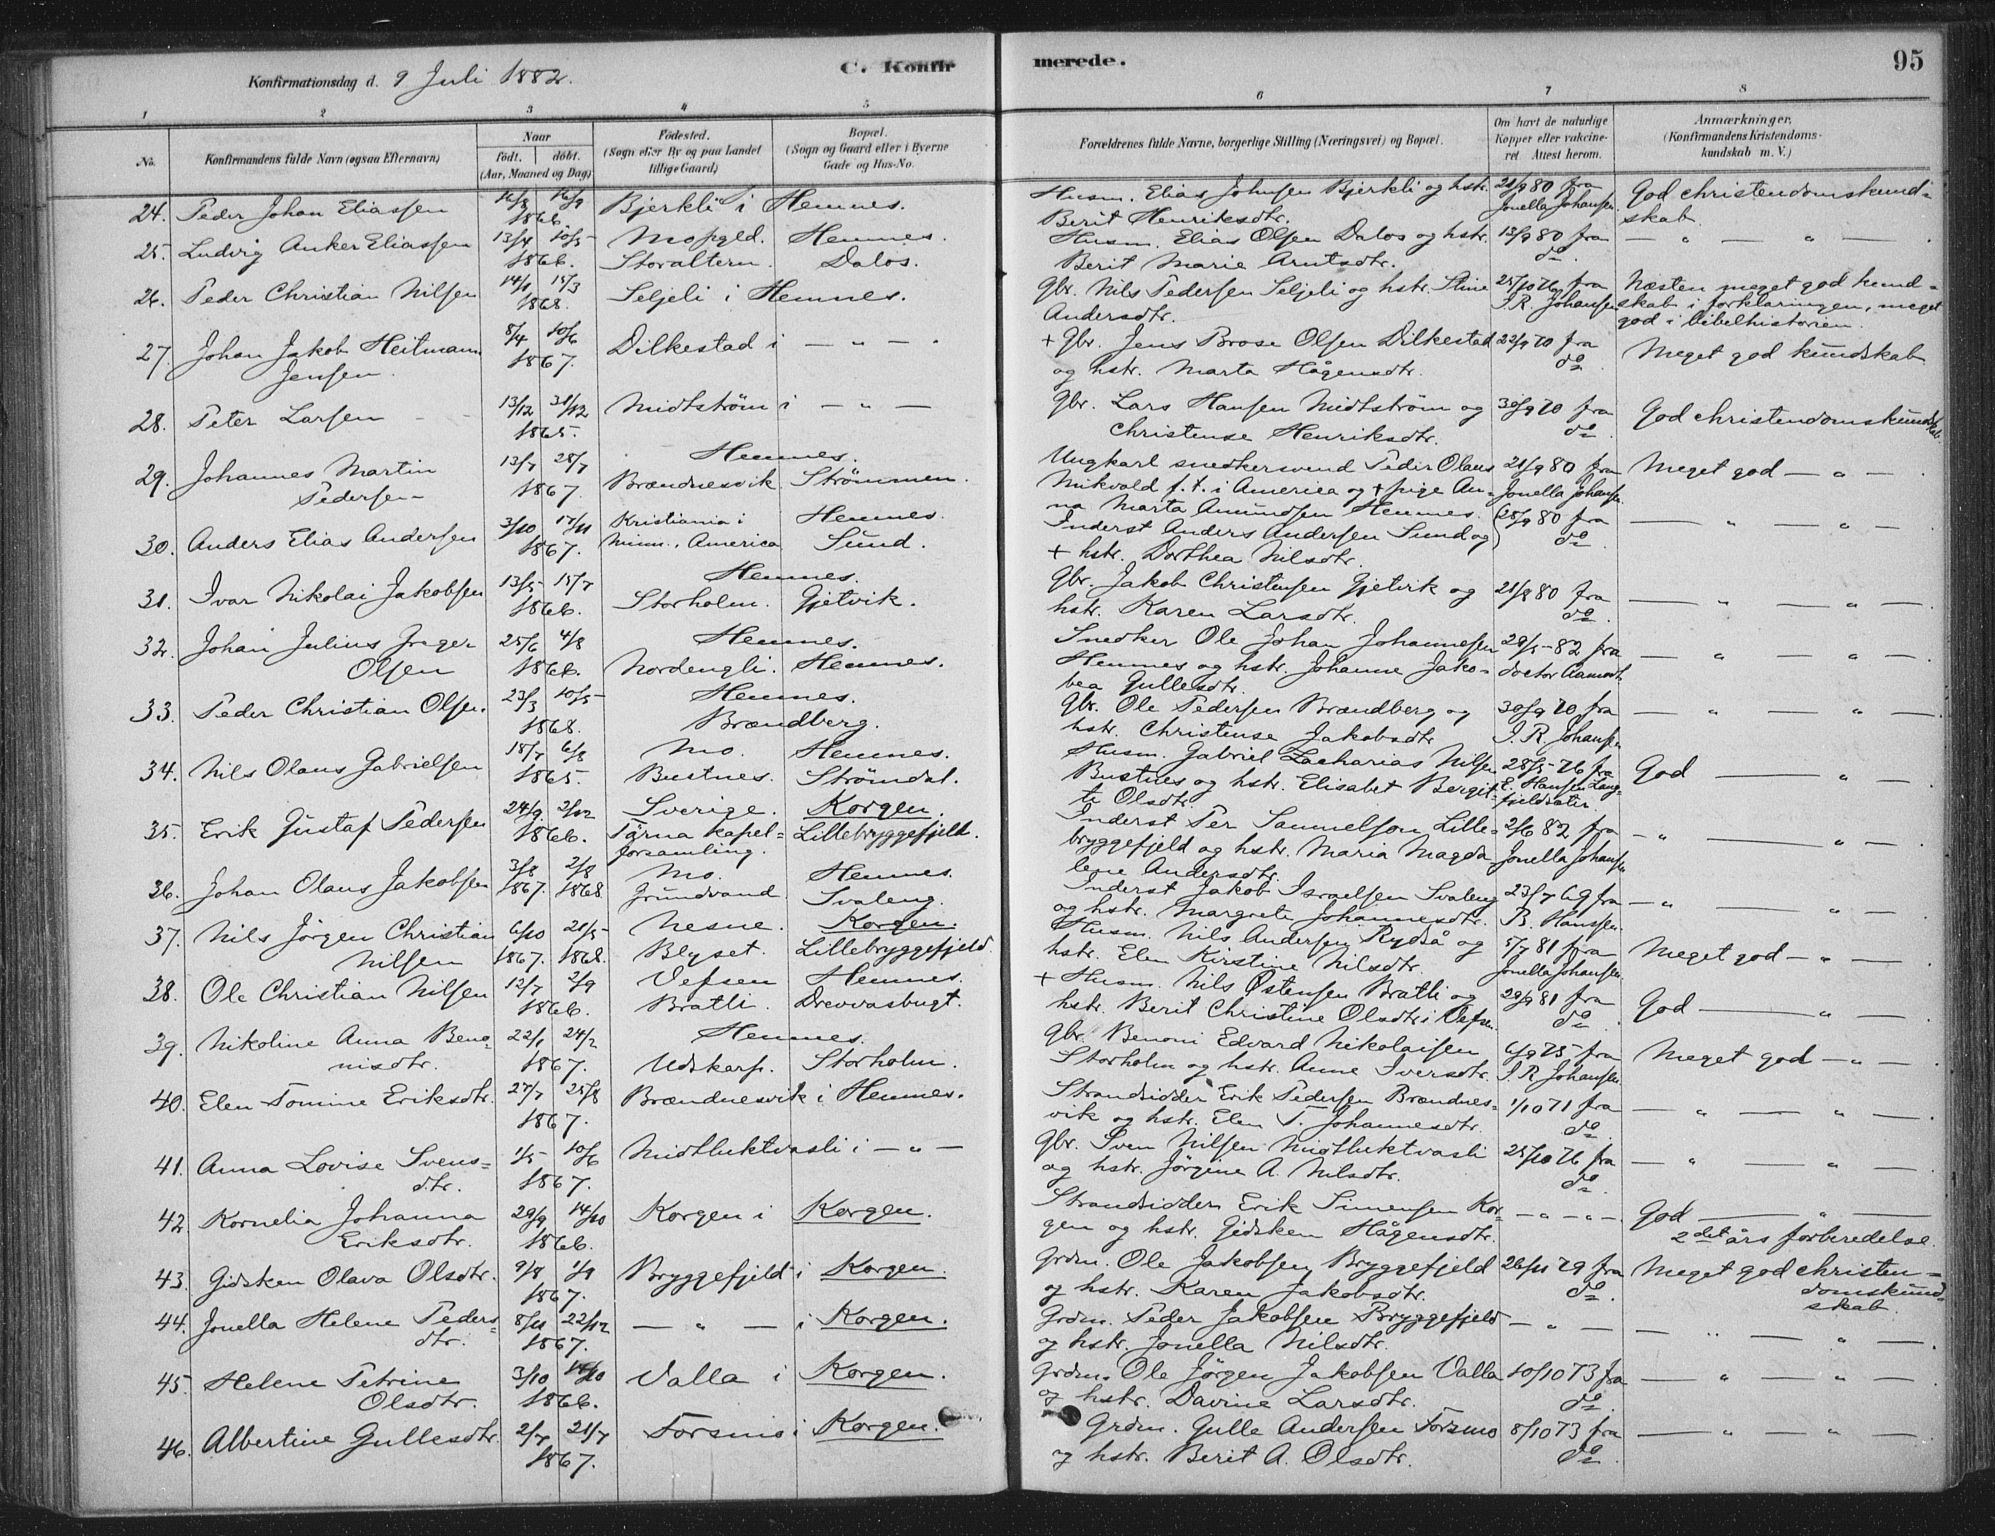 Konfirmationsdag d. 9 Juli 1882.
C. Konfir
merede.
95
1 2 3 4 5 6 7 8
No.
Konfirmandens fulde Navn (ogsaa Efternavn)
Naar
født. døbt.
(Aar, Maaned og Dag)
Fødested.
(Sogn eller By og paa Landet
tillige Gaard)
Bopæl.
(Sogn og Gaard eller i Byerne
Gade og Hus-No.
Forældrenes fulde Navne, borgerlige Stilling (Næringsvei) og Bopæl.
Om havt de naturlige
Kopper eller vakcine-
ret. Attest herom.
Anmærkninger.
(Konfirmandens Kristendoms-
kundskab m. V.)
24. Peder Johan Eliassen 1866. Bjerkli i Hemnes. Husm. Elias Johnsen Bjerkli og hstr. 21/9 80 fra God christendomskund-
Berit Henriksdtr. Jonella Johansen skab
25. Ludvig Anker Eliassen 13/4 10/5 Mo pgld. Hemnes. Husm. Elias Olsen Dalos og hstr. 13/9 80 fra — " — " — .
1866. Storaltern. Dalos. Berit Marie Arntsdtr. do
26. Peder Christian Nilsen 14/1 15/3 Seljeli i Hemnes. Gbr. Nils Pedersen Seljeli og hstr. Stine 25/10 76 fra Næsten meget god kund-
1868. Andersdtr. I. R. Johansen skab i forklaringen, meget
god i bibelhistorien.
27. Johan Jakob Heitmann 8/4 10/6 Dilkestad i — " — . + Gbr. Jens Brose Olsen Dilkestad 22/9 70 fra Meget god kundskab
Jensen. 1867. og hstr. Marta Hågensdtr. do
28. Peter Larsen 13/12 31/12 Midtstrøm i — " — Gbr. Lars Hansen Midtstrøm og 30/9 70 fra God christendomskundskab.
1865. Christense Henriksdtr. do
29. Johannes Martin 13/7 28/7 Hemnes. Ungkarl snedkersvend Peder Olaus 21/9 80 fra Meget god — " — .
Pedersen 1867. Brændnesvik Strømmen. Mikvold f. t. i America og + pige An- Jonella Johansen.
na Marta Amundsen Hemnes.
30. Anders Elias Andersen 3/10 17/11 Kristiania i Hemnes. Inderst Anders Andersen Sund og 28/9 80 fra — " — " — .
1867. Minn., America Sund. + hstr. Dorthea Nilsdtr. do
31. Ivar Nikolai Jakobsen 13/5 15/7 Hemnes. Gbr. Jakob Christensen Gjetvik og 21/8 80 fra — " — " — .
1866. Storholm. Gjetvik. hstr. Karen Larsdtr. do
32. Johan Julius Inger 25/6 4/8 Hemnes. Snedker Ole Johan Johannesen 29/5-82 fra — " — " — .
Olsen 1866. Nordengli. Hemnes. Hemnes og hstr. Johanne Jako- doctor Aamodt
bea Gullesdtr.
33. Peder Christian Olsen. 23/3 10/5 Hemnes. Gbr. Ole Pedersen Brændberg og 30/9 70 fra — " — " — .
1868. Brændberg. hstr. Christense Jakobsdtr I. R. Johansen
34. Nils Olaus Gabrielsen 18/7 6/8 Mo. Hemnes. Husm. Gabriel Zacharias Nilsen 28/5-76 fra God — " — .
1865. Bustnes. Strømdal. Bustnes og hstr. Elisabet Bergit- E. Hansen Lang-
te Olsdtr. fjeldsæter.
35. Erik Gustaf Pedersen 24/9 2/12 Sverige. Korgen. Inderst Per Samuelson Lille- 2/6 82 fra — " — " — .
1866. Tärna kapel- Lillebryggefjeld. bryggefjeld og hstr. Maria Magda- Jonella Johansen
forsamling. lene Andersdtr.
36. Johan Olaus Jakobsen 3/8 2/8 Mo. Hemnes. Inderst Jakob Israelsen Svaleng 23/7 69 fra — " — " — .
1867. 1868. Grundvand Svaleng. og hstr. Margrete Johannesdtr. B. Hanssen.
37. Nils Jørgen Christian 6/10 21/5 Nesne. Korgen. Husm. Nils Andersen Rydså og 5/7 81 fra Meget god — " — .
Nilsen 1867. 1868. Blyset. Lillebryggefjeld. hstr. Elen Kirstine Nilsdtr. Jonella Johansen.
38. Ole Christian Nilsen 12/7 2/9 Vefsen Hemnes. + Husm. Nils Østensen Bratli og 29/9 81 fra God — " — .
1866. Bratli. Drevvasbugt. hstr. Berit Christine Olsdtr i Vefsen. do
39. Nikoline Anna Beno- 22/1 24/2 Hemnes. Gbr. Benoni Edvard Nikolaisen 6/9 75 fra Meget god — " — .
nisdtr. 1867. Udskarp. Storholm. Storholm og hstr. Anne Iversdtr. I. R. Johansen.
40. Elen Tomine Eriksdtr. 27/7 25/8 Brændnesvik i Hemnes. Strandsidder Erik Pedersen Brændnes- 1/10 71 fra — " — " — .
1867. vik og hstr. Elen T. Johannesdtr. do
41. Anna Lovise Svens- 1/5 10/6 Midtluktvasli i — " — Gbr. Sven Nilsen Midtluktvasli 25/10 76 fra — " — " — .
dtr. 1867. og hstr. Jørgine A. Nilsdtr. do
42. Kornelia Johanna 29/9 14/10 Korgen i Korgen. Strandsidder Erik Simensen Kor- — " — " — God — " —
Eriksdtr. 1866. gen og hstr. Gjdsken Hågensdtr. 2det års forberedelse
43. Gidsken Olava Olsdtr. 9/8 1/9 Bryggefjeld i Korgen. Grdm. Ole Jakobsen Bryggefjeld 26/11 79 fra Meget god christen-
1867. og hstr. Karen Jakobsdtr. do domskund-
skab.
44. Jonella Helene Peders- 8/11 22/12 — " — i Korgen. Grdm. Peder Jakobsen Bryggefjeld — " — — " — " — .
dtr. 1867. og hstr. Jonella Nilsdtr.
45. Helene Petrine 3/10 14/10 Valla i Korgen. Grdm. Ole Jørgen Jakobsen Valla 10/10 73 fra — " — " — .
Olsdtr. 1866. og hstr. Davine Larsdtr. do
46. Albertine Gullesdtr. 2/7 21/7 Forsmo i Korgen. Grdm. Gulle Andersen Forsmo 8/10 73 fra — " — " — .
1867. og hstr. Berit A. Olsdtr. do